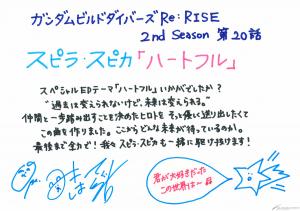 ガンダムビルドダイバーズRe:RISE
2nd Season 第20話
スピラ・スピカ「ハートフル」
スペシャルEDテーマ「ハートフル」いかがでしたか?
"過去は変えられないけど、未来は変えられる。"
仲間と一歩踏み出すことを決めたヒロトを そっと優しく送り出したくて
この曲を作りました。ここからどんな未来が待っているのか。
最後まで全力で!我々スピラ・スピカも一緒に駆け抜けます!
君が大好きだった
この世界は〜♫